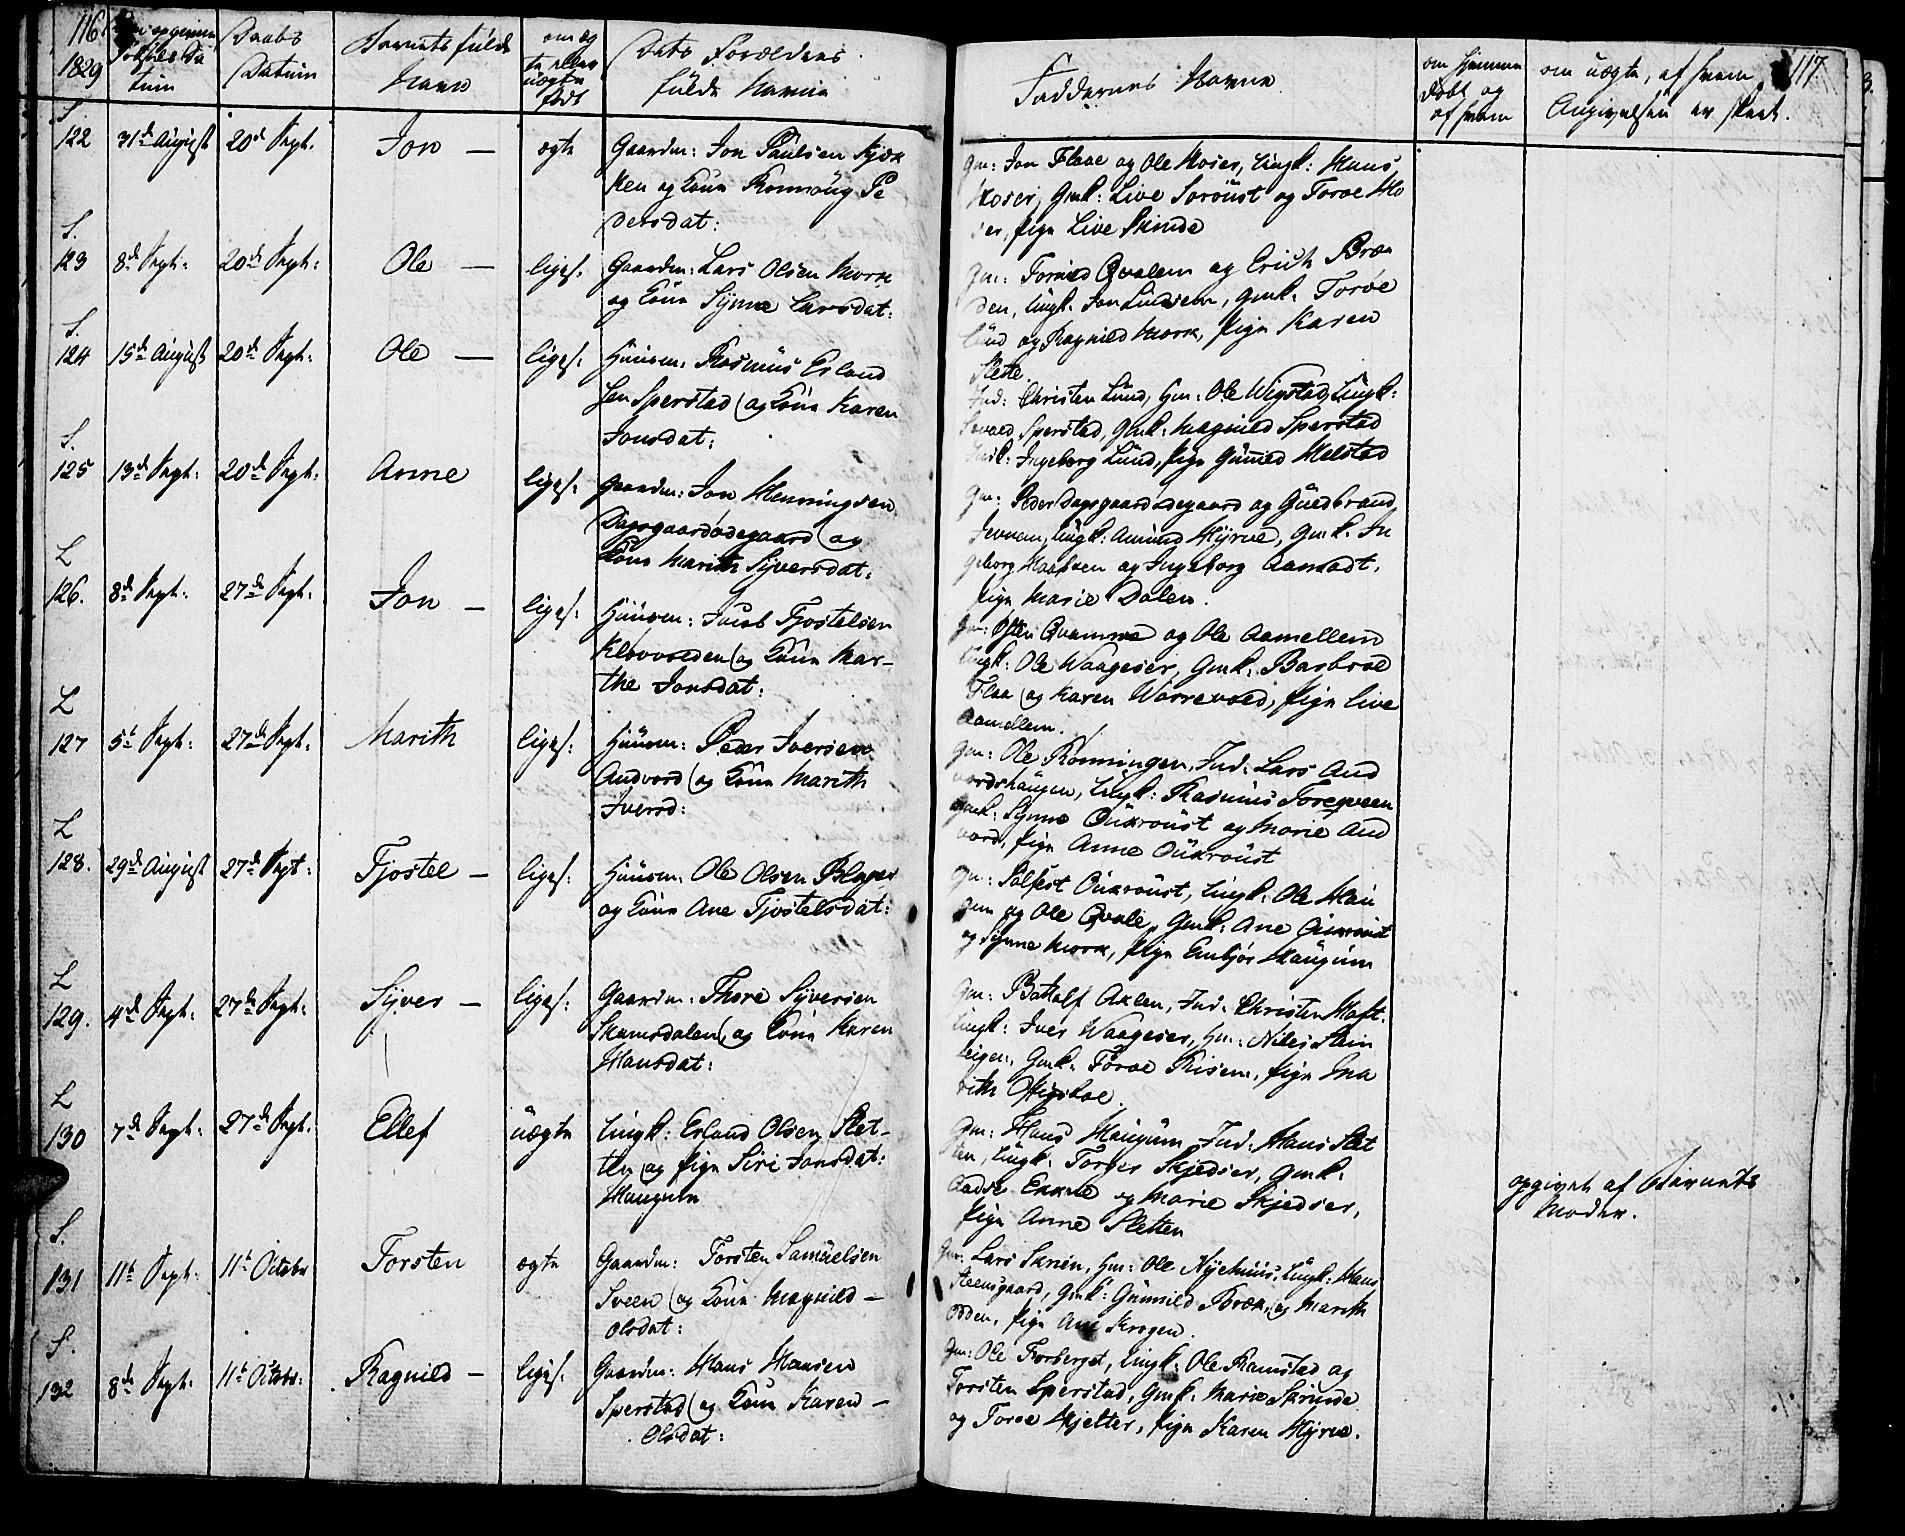 116
1829
Fødsels Da
tum
Daabs
Datum
Barnets fulde
Navn
om æg
te eller
uægte
født
Dets Forældres
fulde Navne
Faddernes Navne
om hjemme
døbt og
af hvem
om uægte, af hvem
Angivelsen er skeet.
117
S.
122 31de August 20de Sept. Jon — ægte
Gaardm: Jon Paulsen Kjøk
ken og Kone Rønnaug Pe
dersdat:
Gm: Jon Flaae og Ole Moser, Ungk: Hans
Moser, Gmk: Live Søroust og Toroe Mo
ser, Pige Live Skinde
S.
123 8de Sept: 20de Sept: Ole — liges.
Gaardm: Lars Olsen Mork
og Kone Synne Larsdat:
Gm: Tormod Qvalem og Erich Bræ
den, Ungk. Jon Lindsem, Gmk: Toroe
Lund og Ragnild Mork, Pige Karen
Slette
S.
124 15de August 20de Sept: Ole — liges:
Huusm: Rasmus Erland
sen Sperstad og Kone Karen
Jonsdat:
Ind: Christen Lund, Gm: Ole Wigstad, Ungk:
Sperstad, Gmk: Magnild Sperstad
Indk: Ingeborg Lund, Pige Gunild Melstad
S.
125 13de Sept: 20de Sept: Anne liges:
Gaardm: Jon Henningsen
Dagsgaardødegaard og
Kone Marith Syversdat:
Gm: Peder Dagsgaardødegaard og Guldbrand
Ungk: Amund Myrne, Gmk. In
geborg og Ingeborg Aamodt,
Pige Marie Dalen.
L
126. 8de Sept: 27de Sept: Jon — liges:
Huusm: Jacob Tjostelsen
Kløvvolden og Kone Mar-
the Jonsdat:
Gm: Qvamme og Ole Aamellem
Ungk: Ole Waageser, Gmk: Barbroe
Flaa og Karen Warrevold, Pige Live
Aamellem.
L
127 5te Sept: 27de Sept: Marith liges:
Huusm: Peder Iversen
Andvord og Kone Marith
Iversd:
Gm: Ole Rønningen, Ind: Lars And
vordshaugen, Ungk: Rasmus Toreqveen
Gmk: Synne Oukroust og Marie And
vord, Pige Anne Oukroust
L
128. 29de August 27de Sept: Tjostel — liges:
Huusm: Ole Olsen Blager
og Kone Ane Tjostelsdat:
Gm: Solfest Oukroust, Ungk: Ole Hau
gen og Ole Qvale, Gmk: Ane Oukroust
og Synne Mork, Pige Embjør Haugum
L
129. 4de Sept: 27de Sept: Syver — liges:
Gaardm: Thore Syversen
Skamsdalen og Kone Karen
Hansdat:
Gm: Battolf Aklen, Ind: Christen Hoft.
Ungk: Iver Waageser, Gm: Niles Stein
Gmk: Toroe Risen, Pige Ma
rith
L
130 7de Sept: 27de Sept: Ellef uægte
Ungk: Erland Olsen Slet-
ten og Pige Siri Jonsdat:
Haugum
Gm: Hans Haugum, Ind: Hans Slet
ten, Ungk: Torger Skjedser, Gmk:
Ekkre og Marie Skjedser,
Pige Anne Sletten
opgivet af Barnets
Moder.
S.
131 11te Sept: 11te October Torsten ægte
Gaardm: Torsten Samuelsen
Sveen og Kone Magnild —
Olsdat:
Gm: Lars Skrien, Gm: Ole Nyehuus, Ungk: Hans
Steensgaard, Gmk: Gunnild Bræk, og Marith
Odden, Pige Ane Krogen.
S.
132 8de Sept: 11te Octobr: Ragnild — liges:
Gaardm: Hans Hansen
Sperstad og Kone Karen —
Olsdat:
Gm: Ole Forberget, Ungk: Ole Ramstad og
Torsten Sperstad, Gmk: Marie Skrinde
og Toroe Hjelter, Pige Karen Myrne.